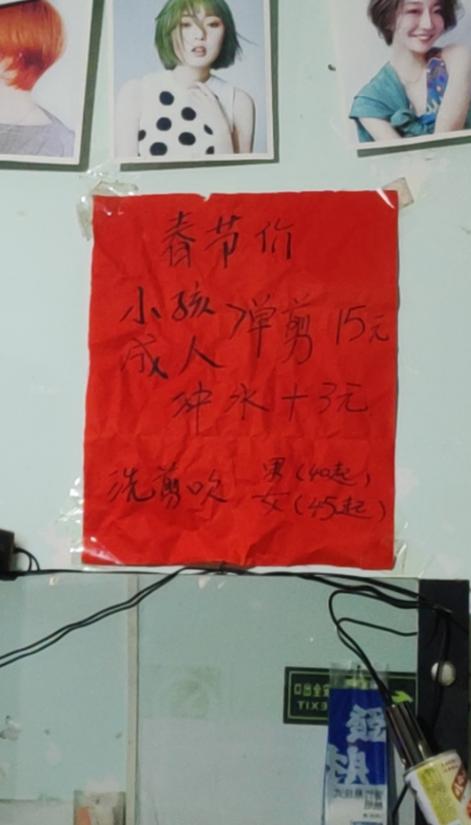 春节价
小孩
成人
单剪 15元
冲水+3元
洗剪吹 男(40起)
女(45起)
安全出口
EXIT